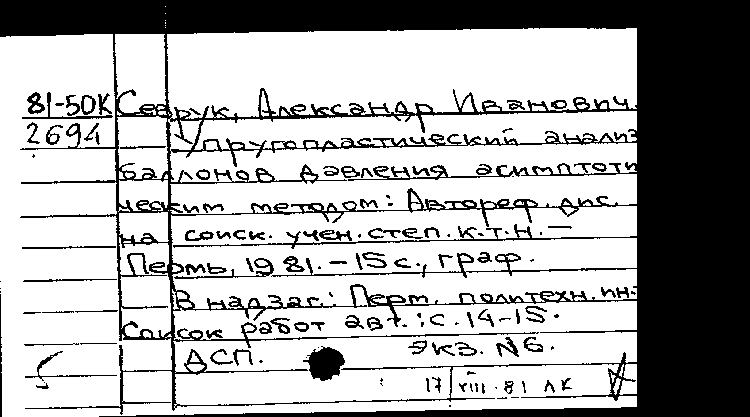 81-5ДК Севрук, Александр Иванович.
2694 Упругопластический анализ
баллонов давления асимптоти
ческим методом: Автореф. дис.
на соиск. учен. степ. к.т.н. —
Пермь, 1981. — 15 с., граф.
В надзаг.: Перм. политехн. ин-
Список работ авт.: с. 14-15.
ДСП. Экз. №6.
17/VIII-81 ЛК